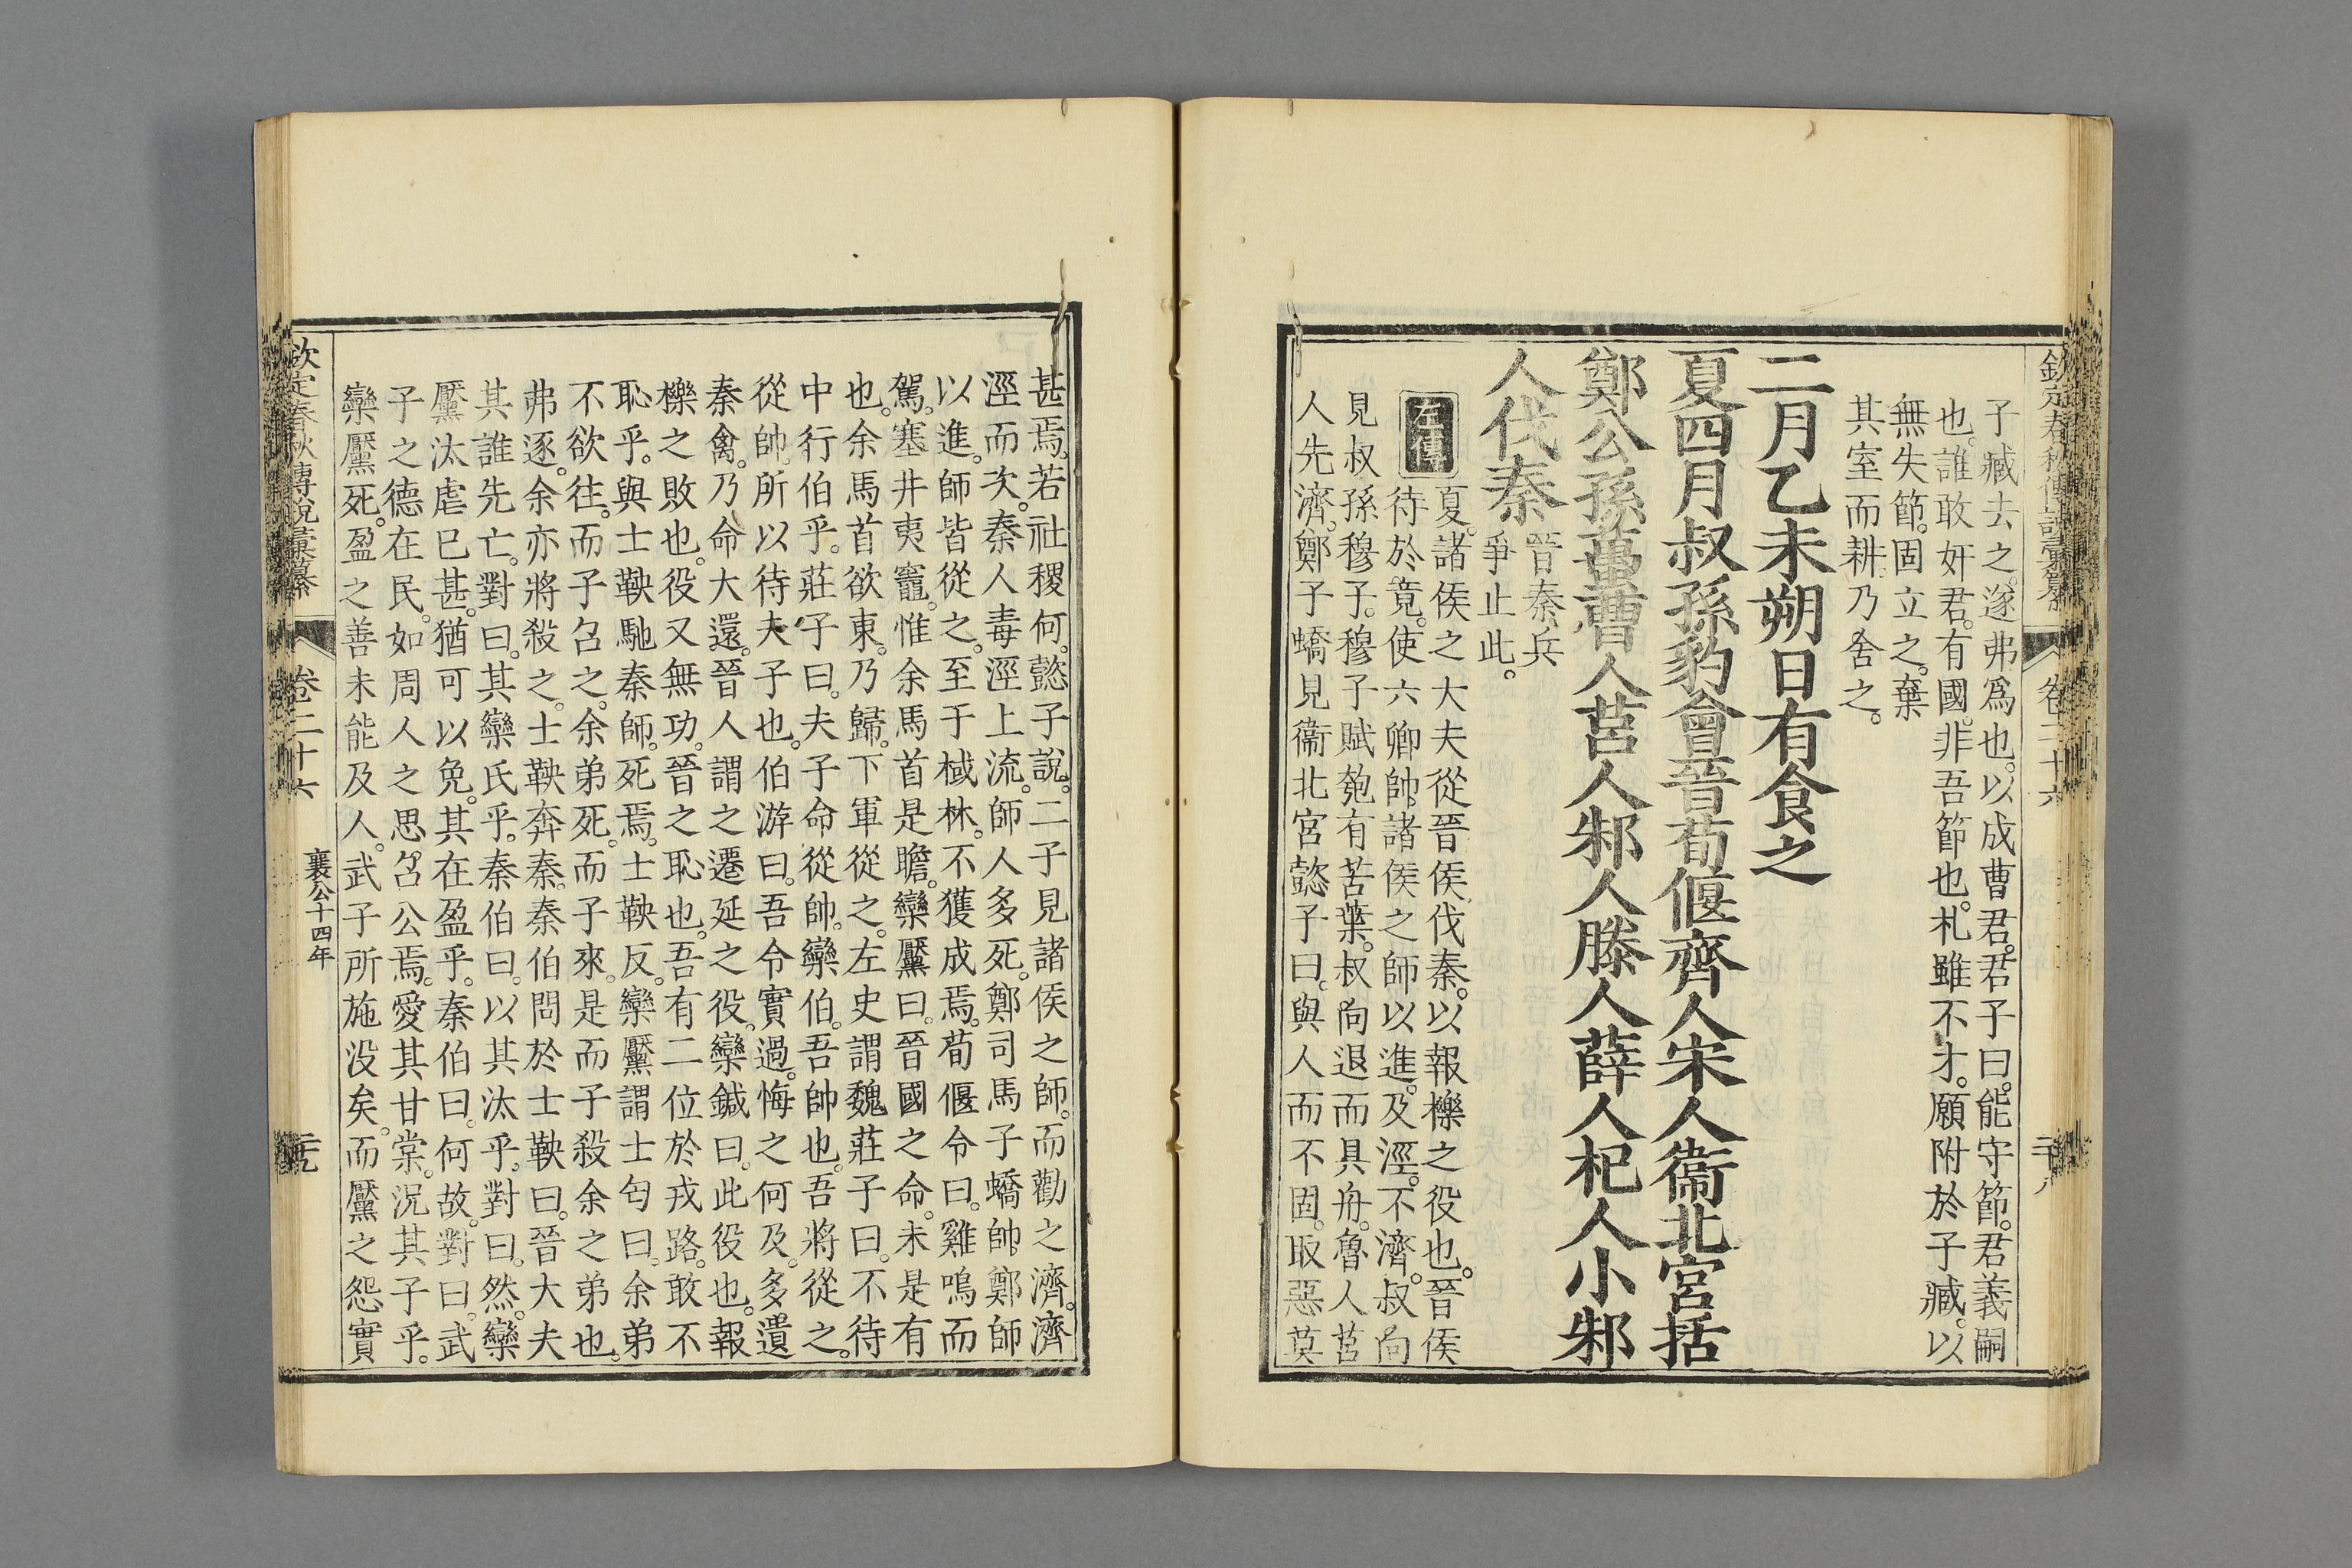 欽定春秋傳說彙纂 卷二十六 二十八
子臧去之。遂弗爲也。以成曹君。君子曰。能守節。君義嗣
也。誰敢奸君。有國。非吾節也。札雖不才。願附於子臧。以
無失節。固立之。棄
其室而耕。乃舍之。
二月乙未朔日有食之
夏四月叔孫豹會晉荀偃齊人宋人衞北宮括
鄭公孫蠆曹人莒人邾人滕人薛人杞人小邾
人伐秦
晉秦兵
爭止此。
左傳
夏。諸侯之大夫從晉侯伐秦。以報櫟之役也。晉侯
待於竟。使六卿帥諸侯之師以進。及涇。不濟。叔向
見叔孫穆子。穆子賦匏有苦葉。叔向退而具舟。魯人莒
人先濟。鄭子蟜見衞北宮懿子曰。與人而不固。取惡莫
甚焉。若社稷何。懿子說。二子見諸侯之師。而勸之濟。濟
涇而次。秦人毒涇上流。師人多死。鄭司馬子蟜帥鄭師
以進。師皆從之。至于棫林。不獲成焉。荀偃令曰。雞鳴而
駕。塞井夷竈。惟余馬首是瞻。欒黶曰。晉國之命。未是有
也。余馬首欲東。乃歸。下軍從之。左史謂魏莊子曰。不待
中行伯乎。莊子曰。夫子命從帥。欒伯。吾帥也。吾將從之。
從帥。所以待夫子也。伯游曰。吾令實過。悔之何及。多遺
秦禽。乃命大還。晉人謂之遷延之役。欒鍼曰。此役也。報
櫟之敗也。役又無功。晉之恥也。吾有二位於戎路。敢不
恥乎。與士鞅馳秦師。死焉。士鞅反。欒黶謂士匄曰。余弟
不欲往。而子召之。余弟死。而子來。是而子殺余之弟也。
弗逐。余亦將殺之。士鞅奔秦。秦伯問於士鞅曰。晉大夫
其誰先亡。對曰。其欒氏乎。秦伯曰。以其汰乎。對曰。然。欒
黶汰虐已甚。猶可以免。其在盈乎。秦伯曰。何故。對曰。武
子之德在民。如周人之思召公焉。愛其甘棠。況其子乎。
欒黶死。盈之善未能及人。武子所施沒矣。而黶之怨實
欽定春秋傳說彙纂 卷二十六 襄公十四年 二十九